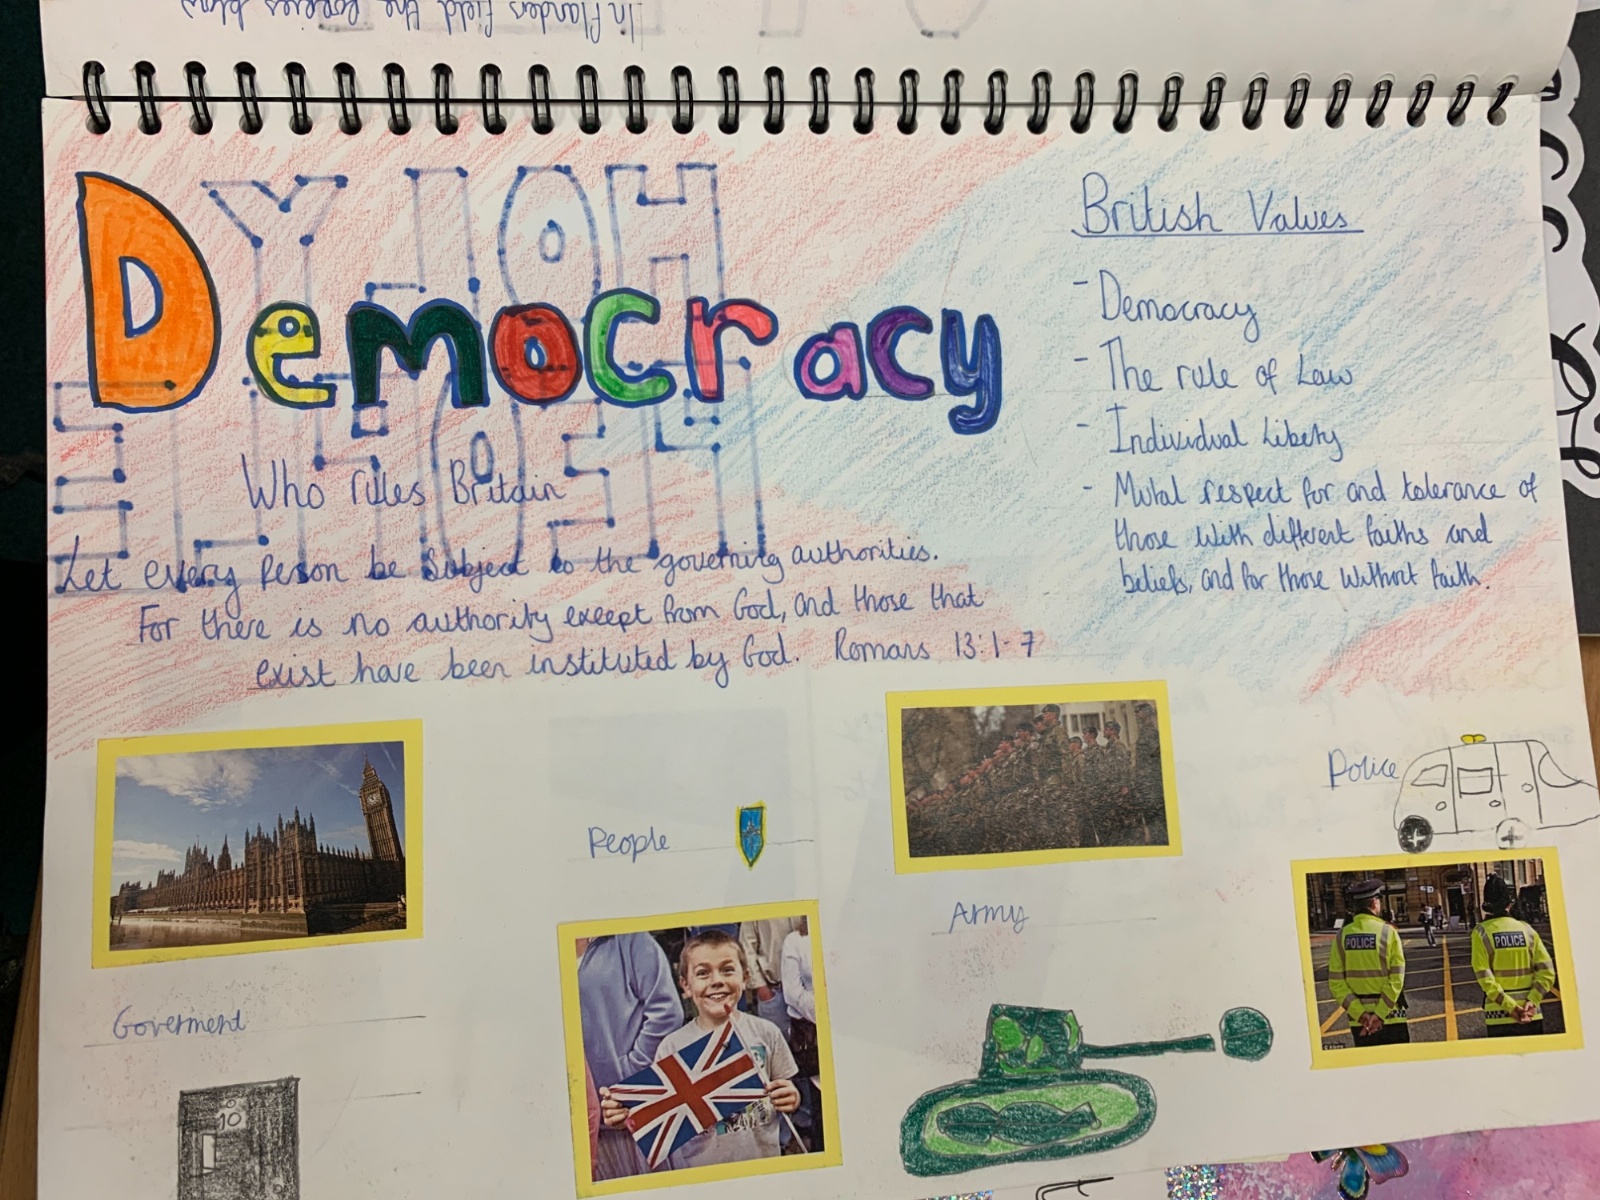 In Flanders field the poppies blow
Democracy
HOLY
PEOPLE
Who rules Britain
Let every person be subject to the governing authorities.
For there is no authority except from God, and those that
exist have been instituted by God. Romans 13:1-7
British Values
- Democracy
- The rule of Law
- Individual Liberty
- Mutal respect for and tolerance of
those with different faiths and
beliefs, and for those without faith.
Goverment
10
People
Army
Police
POLICE
POLICE